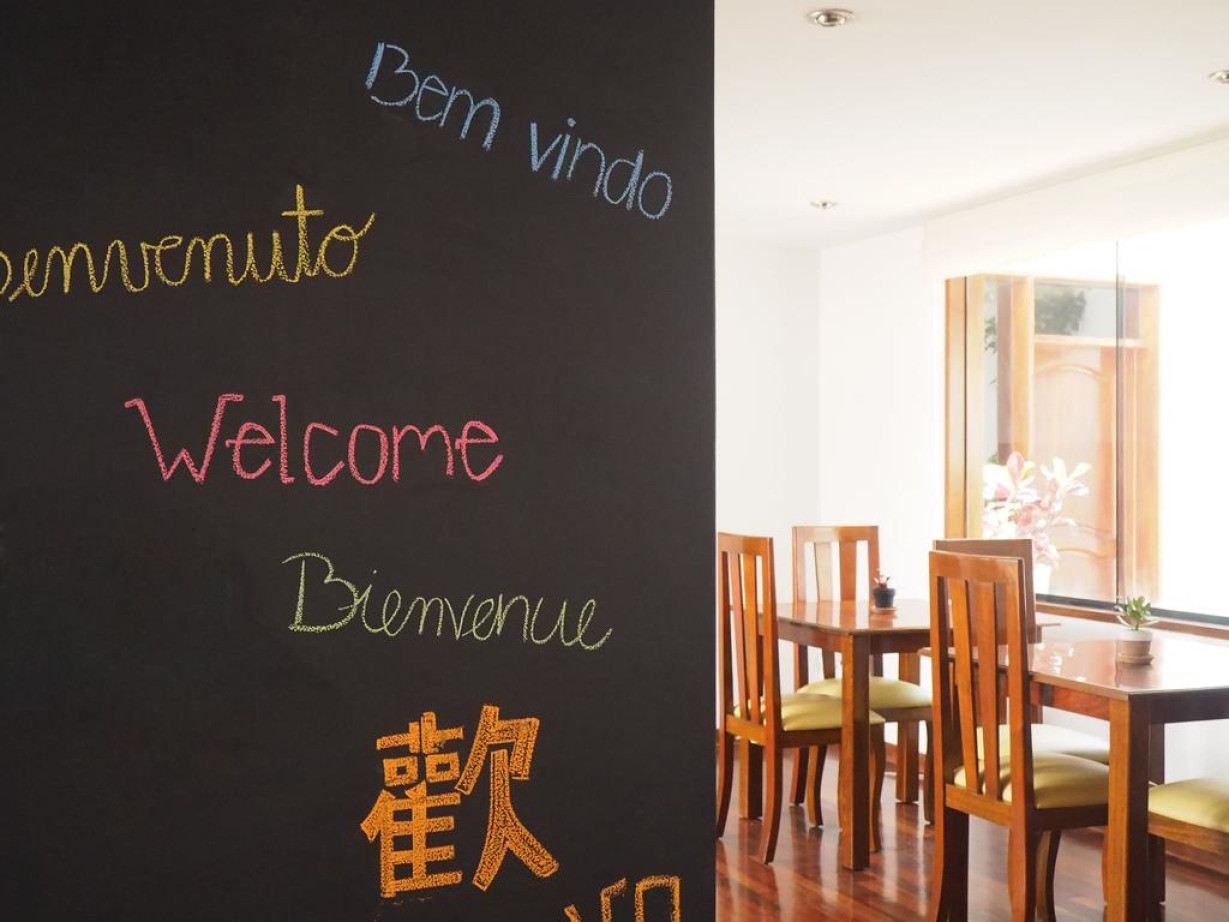 Bem vindo
benvenuto
Welcome
Bienvenue
歡